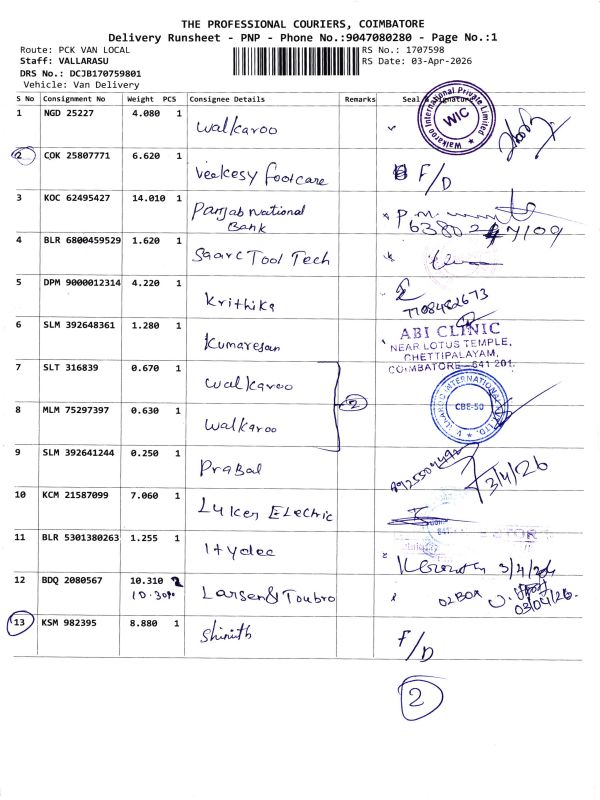 THE PROFESSIONAL COURIERS, COIMBATORE
Delivery Runsheet - PNP - Phone No.:9047080280 - Page No.:1
Route: PCK VAN LOCAL
RS No.: 1707598
Staff: VALLARASU
RS Date: 03-Apr-2026
DRS No.: DCJB170759801
Vehicle: Van Delivery
S No Consignment No Weight PCS Consignee Details Remarks Seal & Signature
1 NGD 25227 4.080 1 Walkaroo
Walkaroo International Private Limited
WIC
2 COK 25807771 6.620 1 Veekesy footcare F/D
3 KOC 62495427 14.010 1 Panjab National
Bank
4 BLR 6800459529 1.620 1 Saarc Tool Tech
5 DPM 9000012314 4.220 1 Krithika
7708482673
6 SLM 392648361 1.280 1 Kumaresan
ABI CLINIC
NEAR LOTUS TEMPLE,
CHETTIPALAYAM,
COIMBATORE - 641 201.
7 SLT 316839 0.670 1 Walkaroo
2
8 MLM 75297397 0.630 1 Walkaroo
CBE-50
9 SLM 392641244 0.250 1 Prabal
3/4/26
10 KCM 21587099 7.060 1 Luker Electric
11 BLR 5301380263 1.255 1 Hydec
3/4/26
12 BDQ 2080567 10.310 2 Larsen & Toubro 02 BOX
10.300
03/04/26.
13 KSM 982395 8.880 1 F/D
2